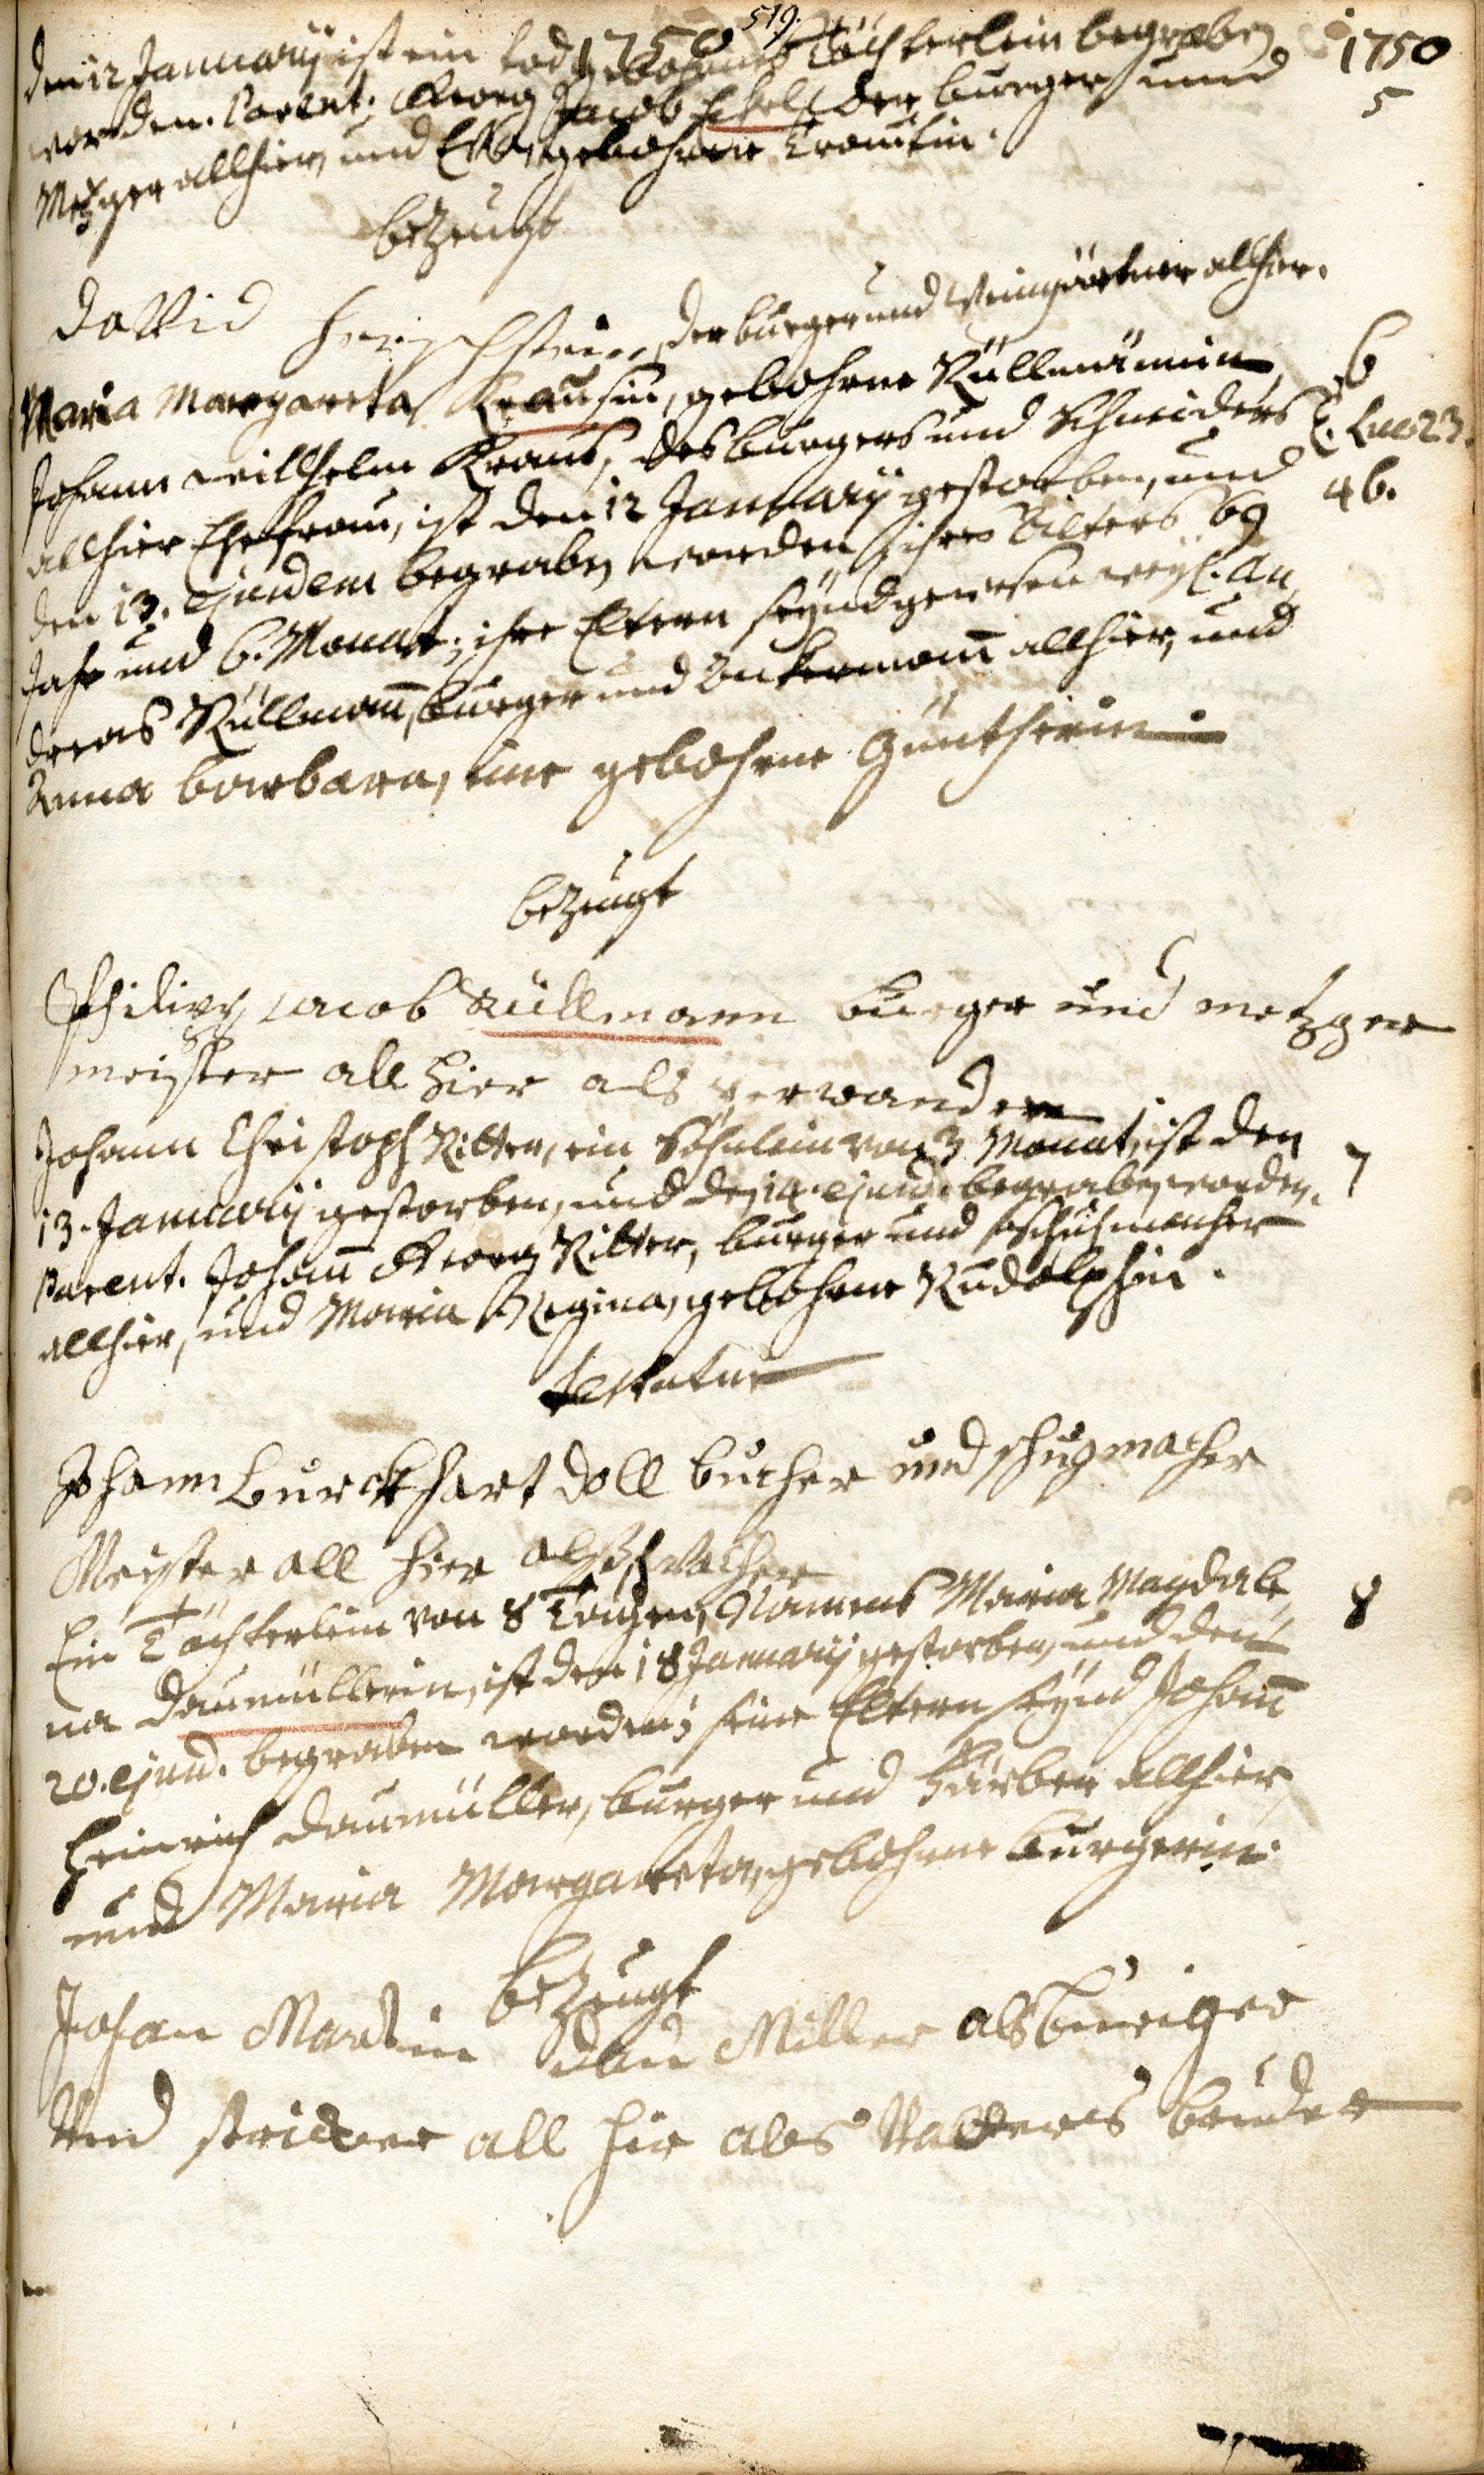 519.
1750
1750
den 12 Januarij ist ein tod gebohrnes Töchterlein begraben
worden. Parent: Georg Jacob der burger und
5
Metzger allhier, und Eva, gebohrne
bezeugt
David der burger und Weingärtner allhier.
Maria Margareta Krausin, gebohrne Rüllmännin,
6
Johann Willhelm Kraus, des burgers und Schneiders
T. Luc 23.
allhier Ehefrau, ist den 12 Januarij gestorben, und
46.
den 13. ejusdem begraben worden, ihres Alters 69
Jahr und 6. Monat; ihre Eltern seynd gewesen weyl. An
dreas Rüllmañ, burger und Ackermañ allhier, und
Anna Barbara, eine gebohrne Güntherin.
bezeugt
Philipp Jacob Rüllmann burger und metzger
meister all hier als verwander
Johann Christoph Ritter, ein Söhnlein von 3 Monat, ist den
7
13. Januarij gestorben, und den 14. ejusd. begraben worden.
Parent. Johañ Georg Ritter, burger und Schuhmacher
allhier, und Maria Regina, gebohrne Rudolphin.
Testatur
Johann Burckhart Doll bürher und schugmacher
Meister all hier
Ein Töchterlein von 8 Tagen, Namens Maria Magdale
8
na Daumüllerin, ist den 18 Januarij gestorben, und den
20. ejusd. begraben worden; seine Eltern seynd Johañ
Heinrich Daumüller, burger und Färber allhier,
und Maria Margareta, gebohrne Burgerin.
bezeugt
Johan Martin Dau Miller als buriger
Und stricker all hir als Vatters bruder